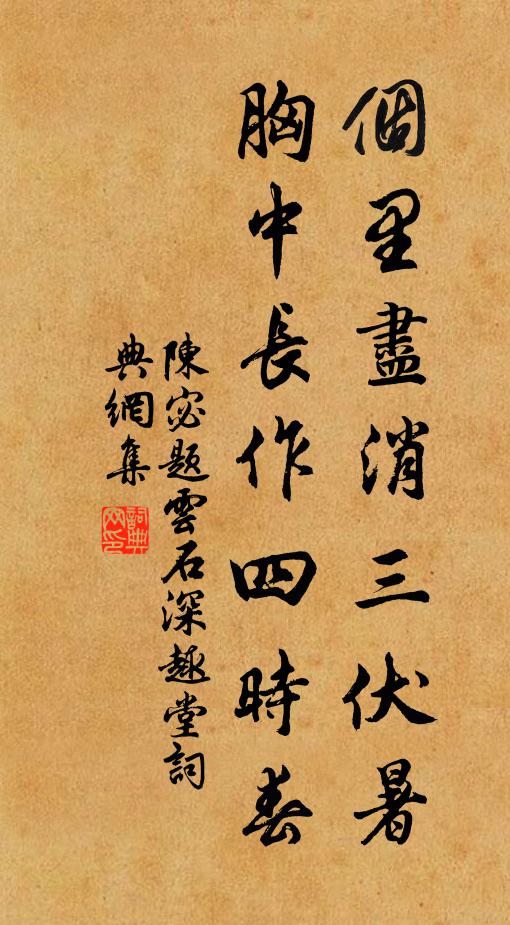 個里盡消三伏暑
胸中長作四時春
陳宓題雲石深趣堂詞
典網集
詞典